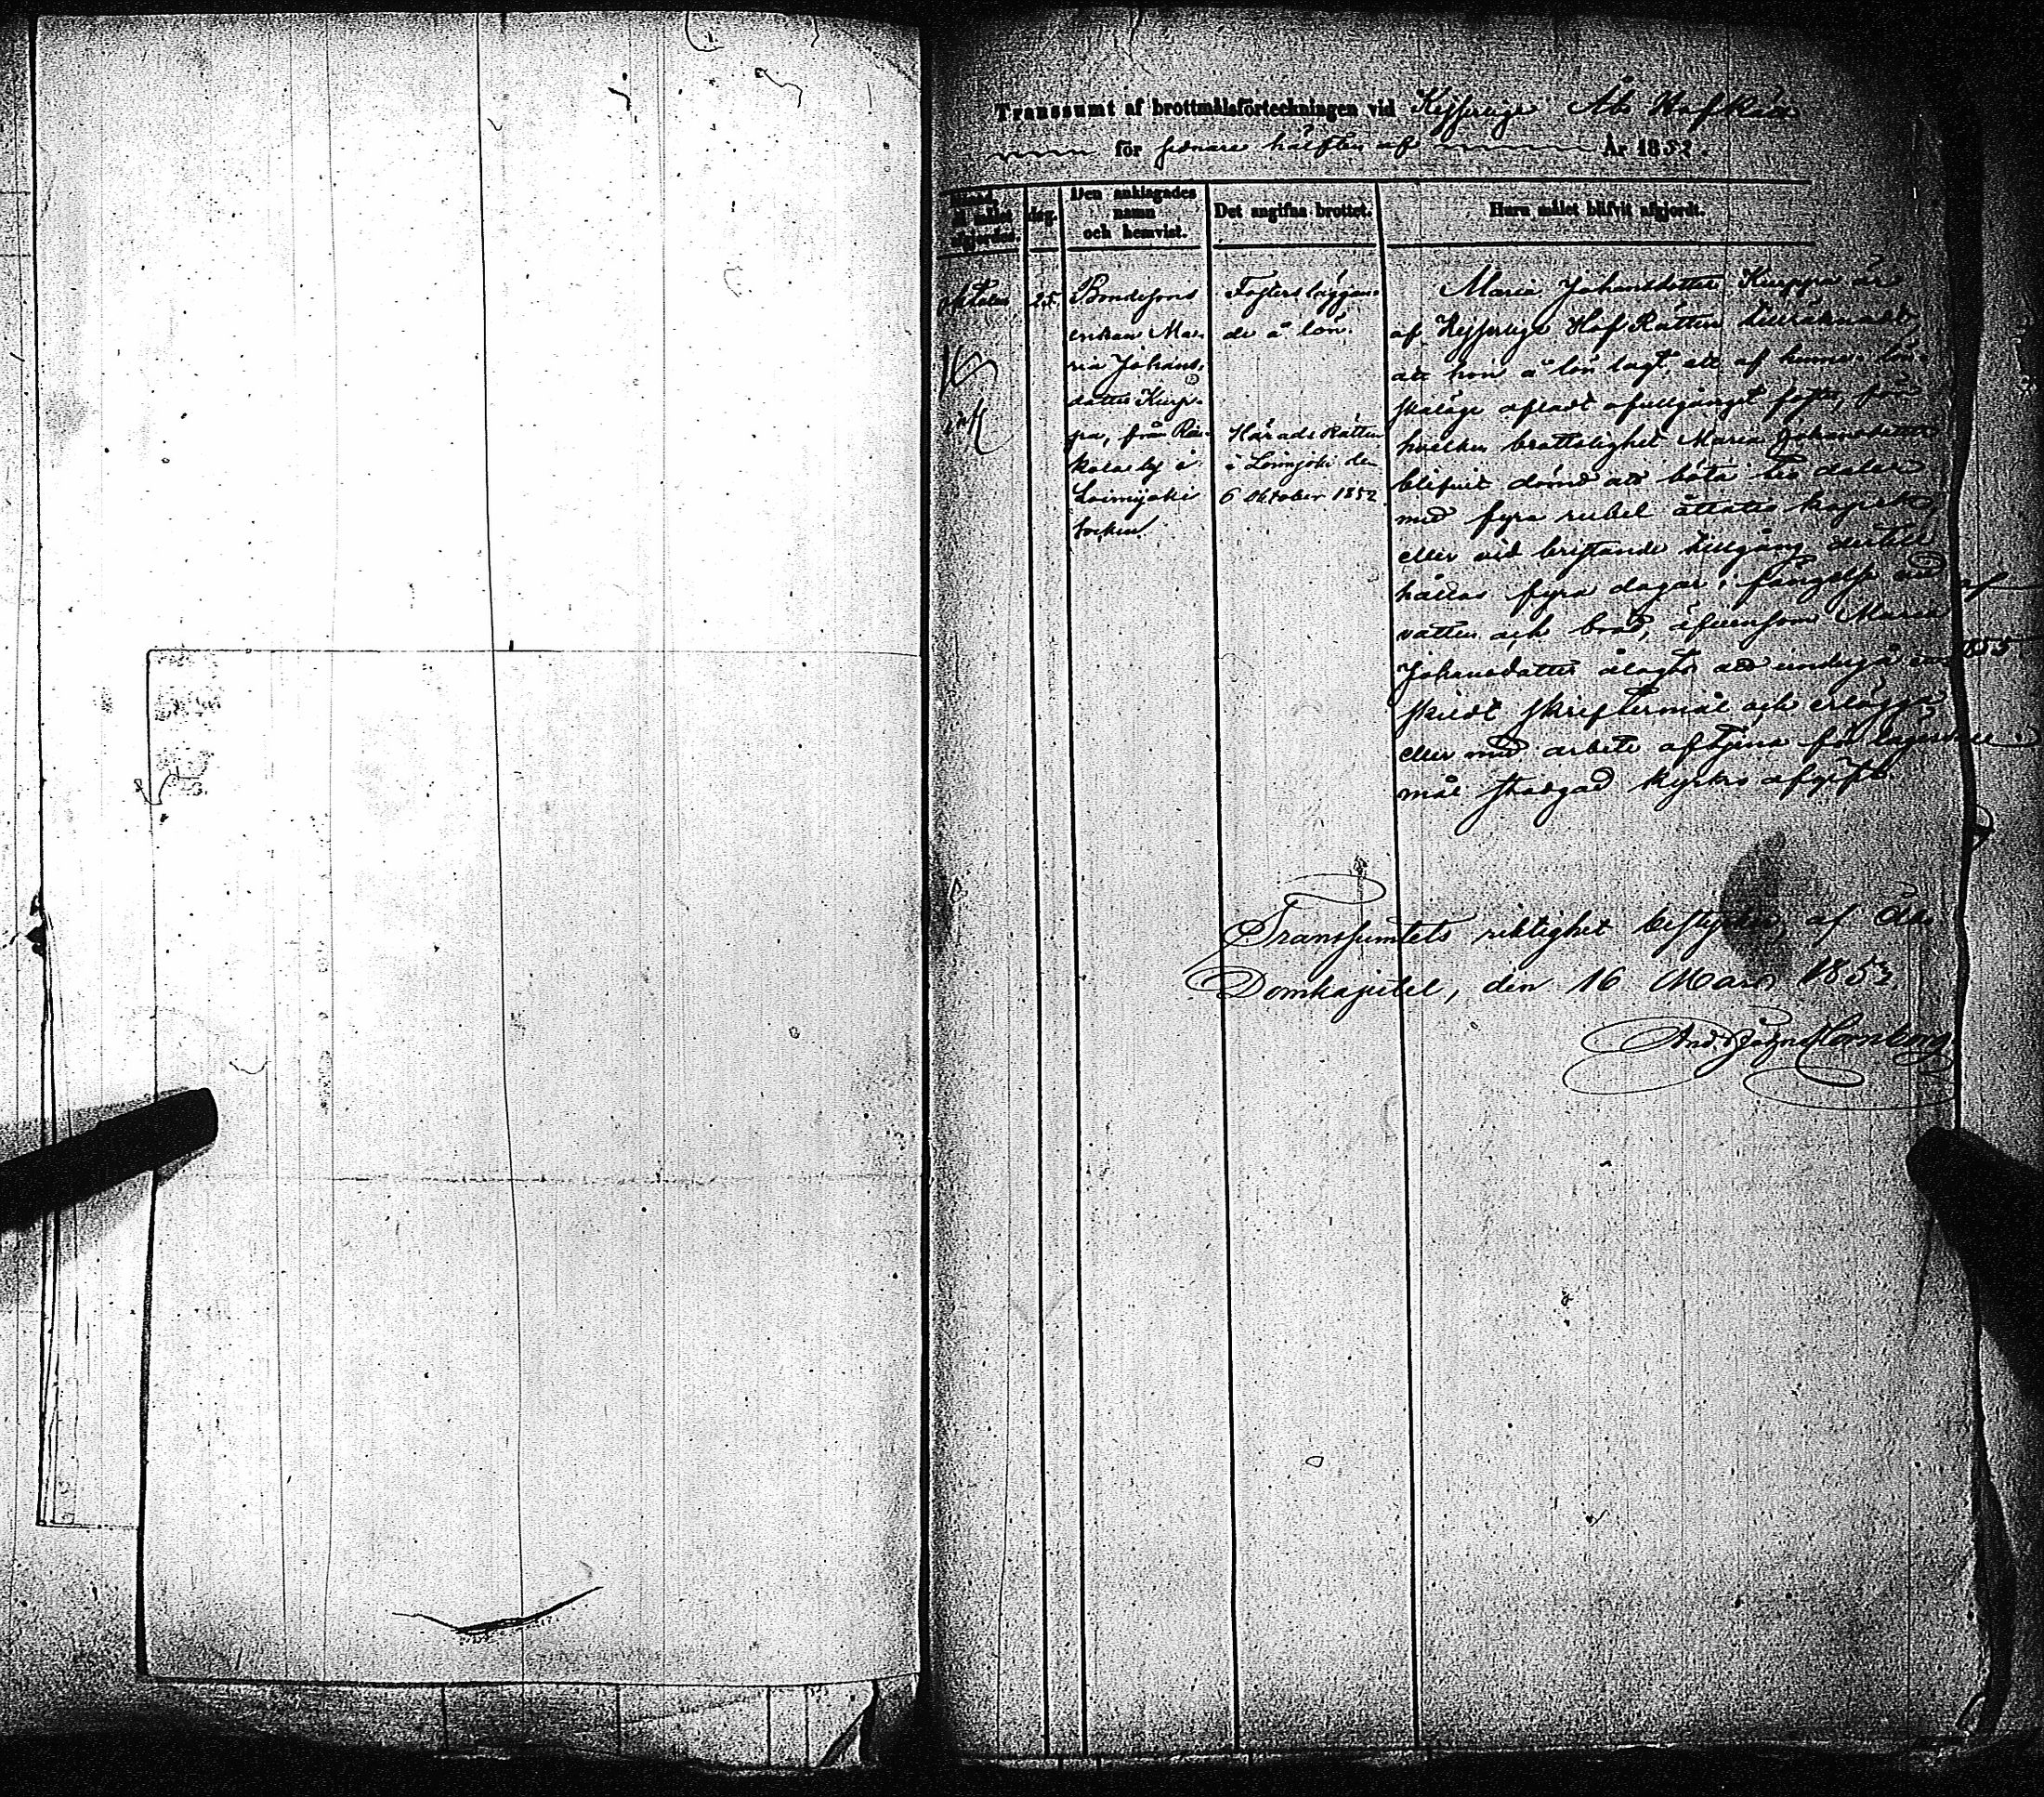 Transsumt af brottmålsförteckningen vid Kejserliga Åbo HofRätt
för sednare hälften af År 1852.
Månad, då målet afgjordes.
dag.
Den anklagades namn och hemvist.
Det angifna brottet.
Huru målet blifvit afgjordt.
Oktober
25.
Bondesons
enkan Ma-
ria Johans-
dotter Kurp-
pa, från
by i
Loimijoki
socken.
Fosters läggan-
de å lön.
HäradsRätten
i Loimijoki den
6 Oktober 1852
Maria Johansdotter Kurppa är
af Kejserliga HofRätten
att hon å lön lagt, ett af henne i lön-
skaläge afladt ofullgånget foster, för
hvilken brottslighet Maria Johansdotter
blifvit dömd att böta tio daler
med fyra rubel åttatio kopek,
eller vid bristande tillgång dertill
hållas fyra dagar i fängelse vid
vatten och bröd, äfvensom Maria
Johansdotter ålagts att undergå en-
skildt skriftermål och erlägga
eller med arbete aftjena för lägers-
mål stadgad kyrko afgift.
af
1855
Transsumtets riktighet bestyrkes, af Åbo
Domkapitel, den 16 Mars 1853.